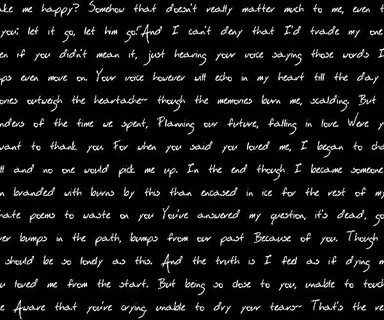 ake me happy? Somehow that doesn't really matter much to me, even t
you: let it go, let him go! And I can't deny that I'd trade my one
en if you didn't mean it, just hearing your voice saying those words I
ps even move on. Your voice however will echo in my heart till the day
ories outweigh the heartache- though the memories burn me, scalding. But
nders of the time we spent, Planning our future, falling in love. Were y
want to thank you. For when you said you loved me, I began to cha
ll and no one would pick me up. In the end though I became someone
n branded with burns by this than encased in ice for the rest of my
nate poems to waste on you You've answered my question, it's dead, go
ver bumps in the path, bumps from our past Because of you. Though
should be so lonely as this. And the truth is I feel as if dying m
ou loved me from the start. But being so close to you, unable to touch
e Aware that you're crying, unable to dry your tears- That's the ve